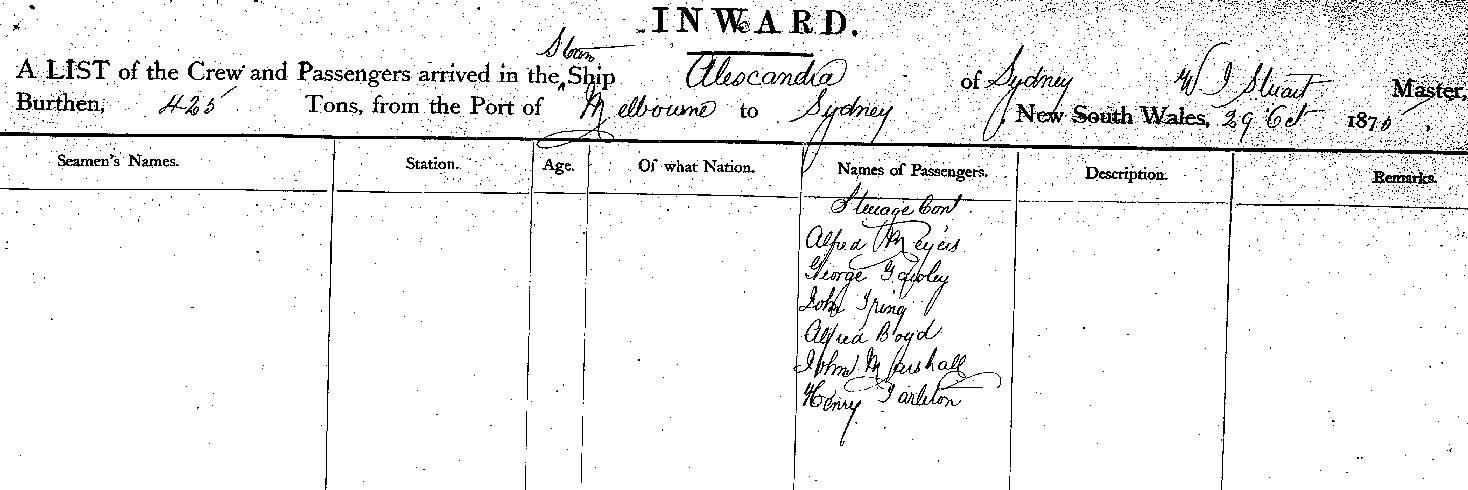 INWARD.
Steam
A LIST of the Crew and Passengers arrived in the Ship Alexandra of Sydney W J Stuart Master,
Burthen, 425 Tons, from the Port of Melbourne to Sydney, New South Wales, 29 Oct 1870
Seamen's Names. Station. Age. Of what Nation. Names of Passengers. Description. Remarks.
Steerage Cont
Alfred Meyers
George
John
Alfred Boyd
John Marshall
Henry Tarleton